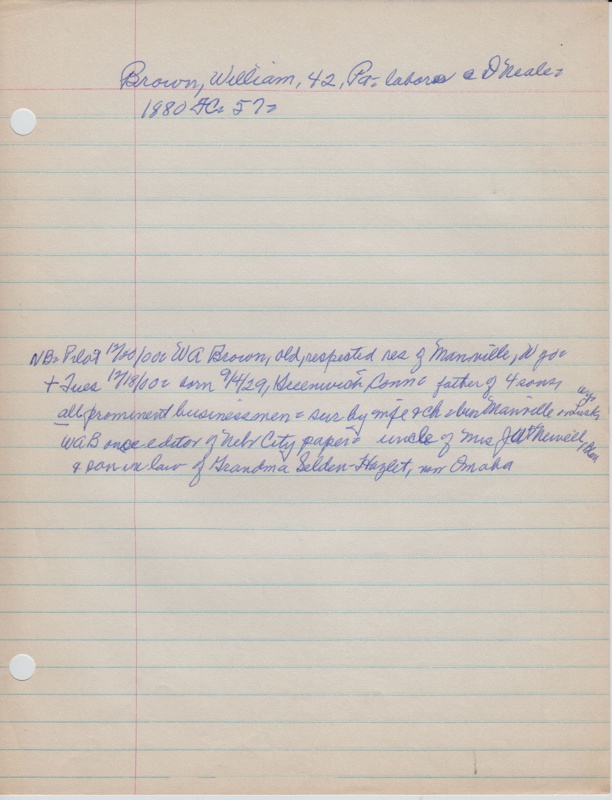 Brown, William, 42, Pa= laborer c O'Neale=
1880 FC= 57=
NB= Pilot 12/20/00= WA Brown, old, respected res of Manville, Wyo=
+ Tues 12/18/00= born 9/4/29, Greenwich Conn= father of 4 sons,
all prominent businessmen= sur by wife & ch= bur Manville = Lusk, wyo
WAB once editor of Nebr City paper= uncle of Mrs J W
& son in law of Grandma Selden-Hazlet, now Omaha